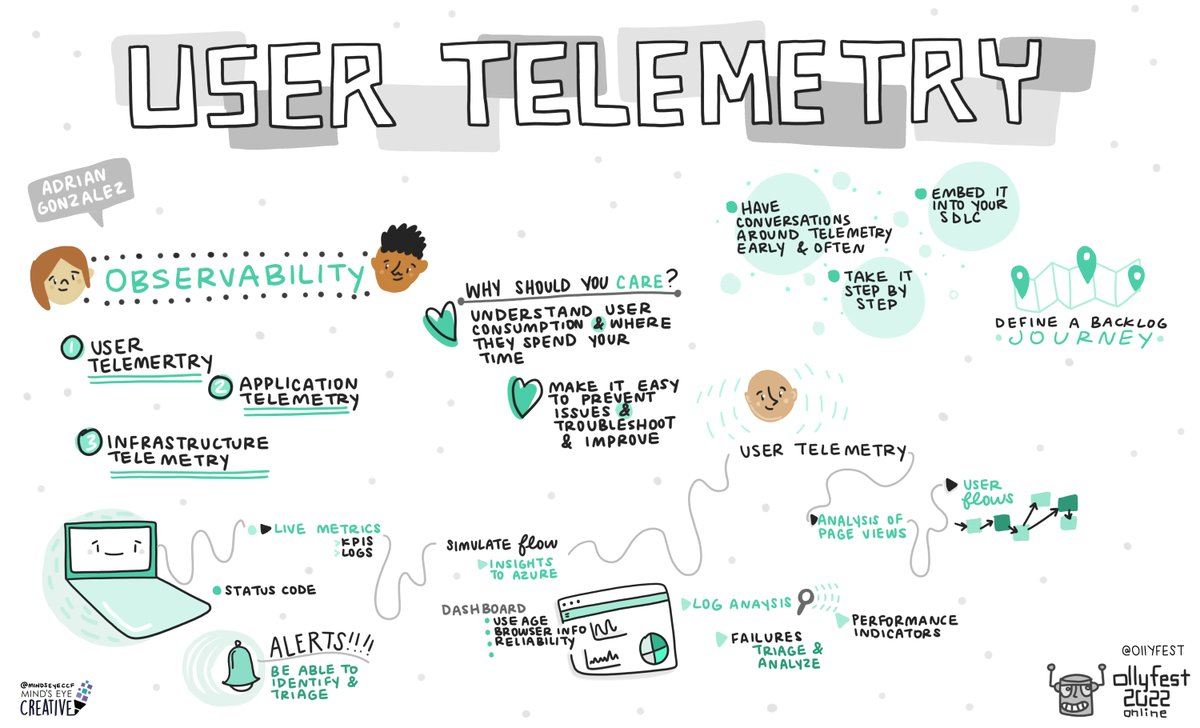 USER TELEMETRY
ADRIAN
GONZALEZ
OBSERVABILITY
1 USER
TELEMERTRY
2 APPLICATION
TELEMETRY
3 INFRASTRUCTURE
TELEMETRY
WHY SHOULD YOU CARE?
UNDERSTAND USER
CONSUMPTION & WHERE
THEY SPEND YOUR
TIME
MAKE IT EASY
TO PREVENT
ISSUES &
TROUBLESHOOT
& IMPROVE
HAVE
CONVERSATIONS
AROUND TELEMETRY
EARLY & OFTEN
EMBED IT
INTO YOUR
SDLC
TAKE IT
STEP BY
STEP
DEFINE A BACKLOG
JOURNEY
USER TELEMETRY
USER
flows
ANALYSIS OF
PAGE VIEWS
LIVE METRICS
KPIS
LOGS
STATUS CODE
SIMULATE flow
INSIGHTS
TO AZURE
DASHBOARD
USE AGE
BROWSER INFO
RELIABILITY
LOG ANAYSIS
PERFORMANCE
INDICATORS
FAILURES
TRIAGE &
ANALYZE
ALERTS!!!!
BE ABLE TO
IDENTIFY &
TRIAGE
@MINDSEYECCF
MIND'S EYE
CREATIVE
@OllYFEST
ollyfest
2022
online